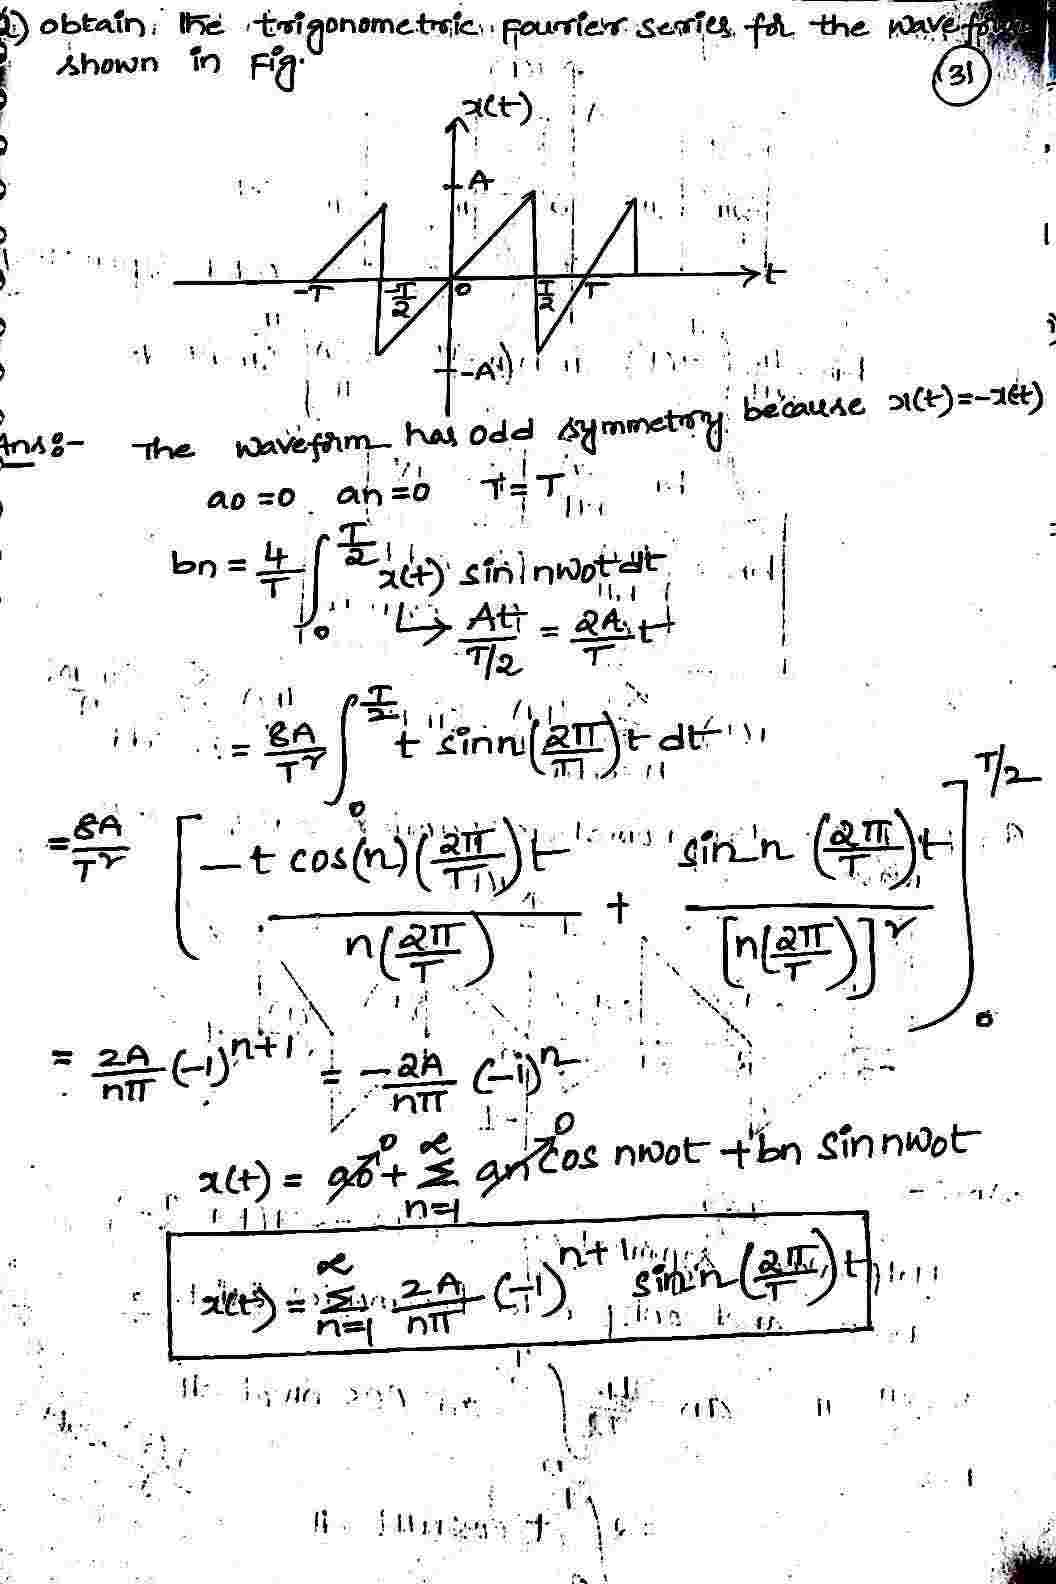 2) obtain the trigonometric Fourier series for the wave form
shown in Fig.
31
x(t)
A
-T -T/2 0 T/2 T t
-A
Ans:- The waveform has odd symmetry because x(t)=-x(t)
a0=0 an=0 T=T
bn = 4/T ∫_0^{T/2} x(t) sin nw0t dt
↳ At/(T/2) = 2A/T t
= 8A/T² ∫_0^{T/2} t sin n(2π/T)t dt
= 8A/T² [ -t cos(n)(2π/T)t / n(2π/T) + sin n(2π/T)t / [n(2π/T)]² ]_0^{T/2}
= 2A/nπ (-1)^{n+1} = -2A/nπ (-1)^n
x(t) = a0→0 + ∑_{n=1}^{∞} an→0 cos nw0t + bn sin nw0t
x(t) = ∑_{n=1}^{∞} 2A/nπ (-1)^{n+1} sin n(2π/T)t